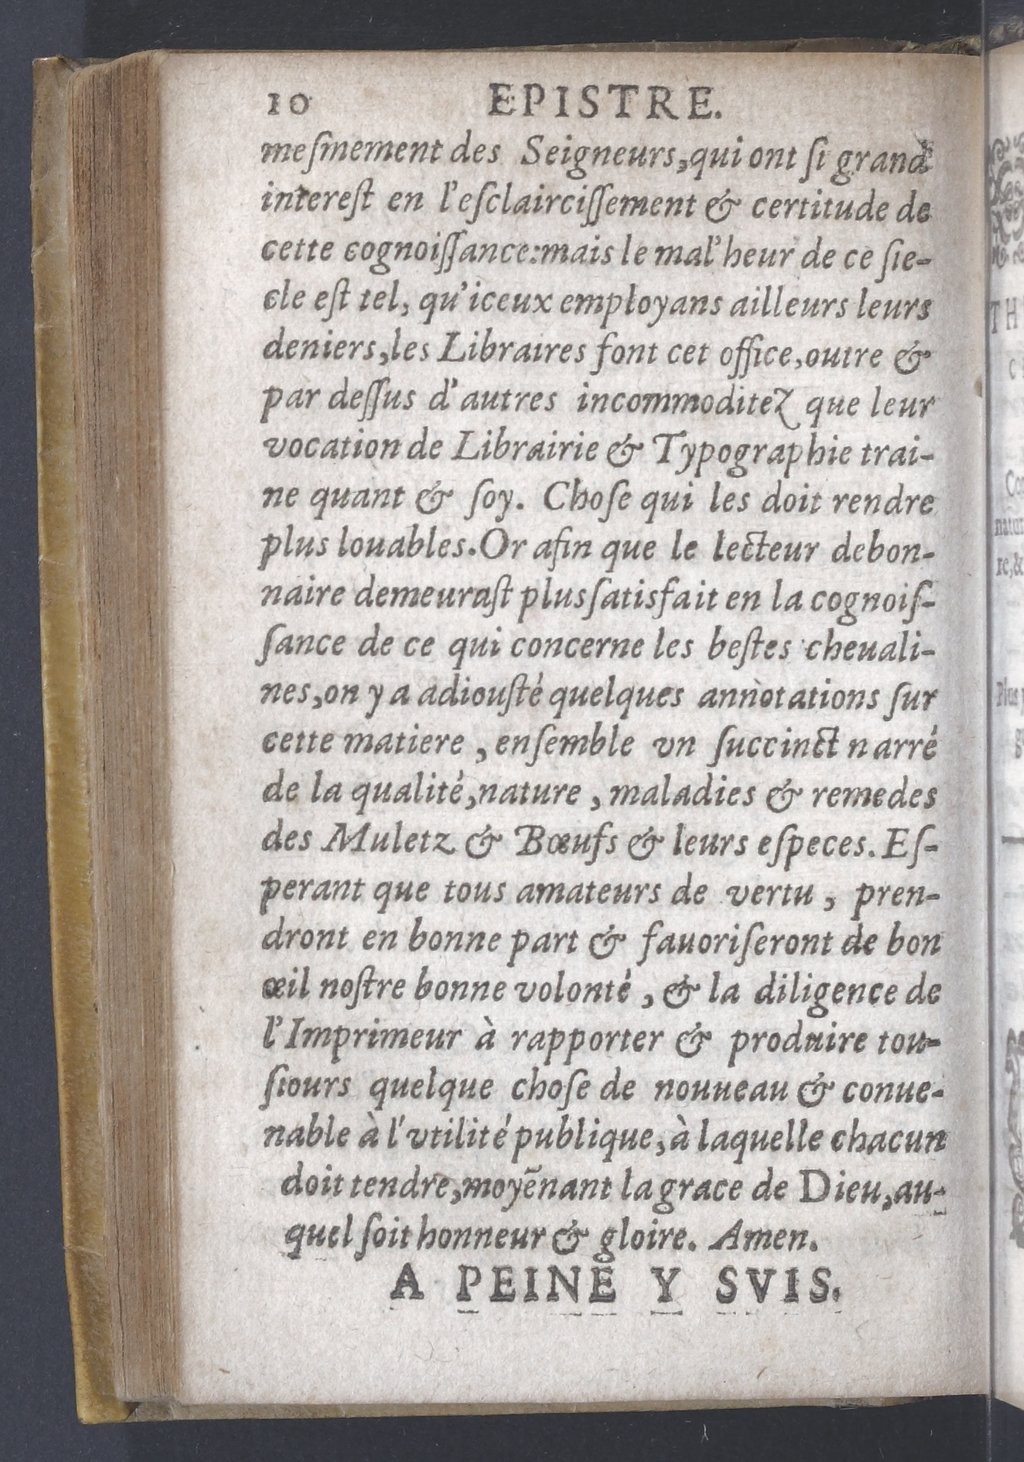 10 EPISTRE.
meſmement des Seigneurs,qui ont ſi grand
intereſt en l'eſclairciſſement & certitude de
cette cognoiſſance:mais le mal'heur de ce ſie-
cle eſt tel, qu'iceux employans ailleurs leurs
deniers,les Libraires font cet office,outre &
par deſſus d'autres incommoditez que leur
vocation de Librairie & Typographie trai-
ne quant & ſoy. Choſe qui les doit rendre
plus louables.Or afin que le lecteur debon-
naire demeuraſt plus ſatisfait en la cognoiſ-
ſance de ce qui concerne les beſtes cheuali-
nes,on y a adiouſté quelques annotations ſur
cette matiere , enſemble vn ſuccinct narré
de la qualité,nature , maladies & remedes
des Muletz & Bœufs & leurs eſpeces. Eſ-
perant que tous amateurs de vertu , pren-
dront en bonne part & fauoriſeront de bon
œil noſtre bonne volonté , & la diligence de
l'Imprimeur à rapporter & produire tou-
ſiours quelque choſe de nouueau & conue-
nable à l'vtilité publique,à laquelle chacun
doit tendre,moyẽnant la grace de Dieu,au-
quel ſoit honneur & gloire. Amen.
A PEINE Y SVIS.